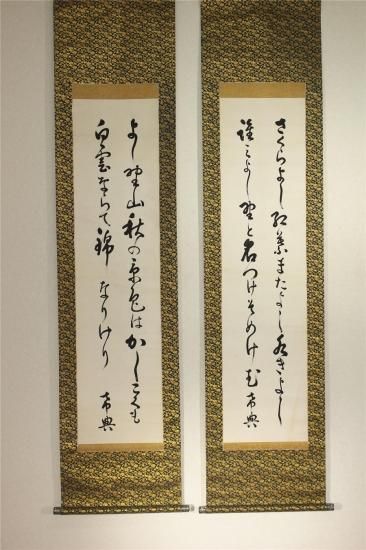 さくらよし紅葉またよし水きよし
誰によし野と名つけそめけむ 市典
よし野山秋の景色はかしこくも
白雲ならて錦なりけり
市典